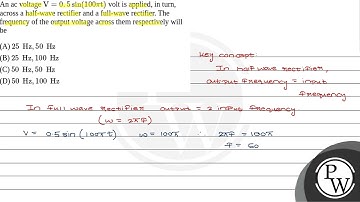 An ac voltage V = 0.5 sin(100πt) volt is applied, in turn,
across a half-wave rectifier and a full-wave rectifier. The
frequency of the output voltage across them respectively will
be
(A) 25 Hz, 50 Hz
(B) 25 Hz, 100 Hz
(C) 50 Hz, 50 Hz
(D) 50 Hz, 100 Hz
Key concept:
In half wave rectifier,
output frequency = input
frequency
In full wave rectifier output = 2 input frequency
(ω = 2πF)
V = 0.5 sin (100πt) ω = 100π ∴ 2πF = 100π
F = 50
P
W